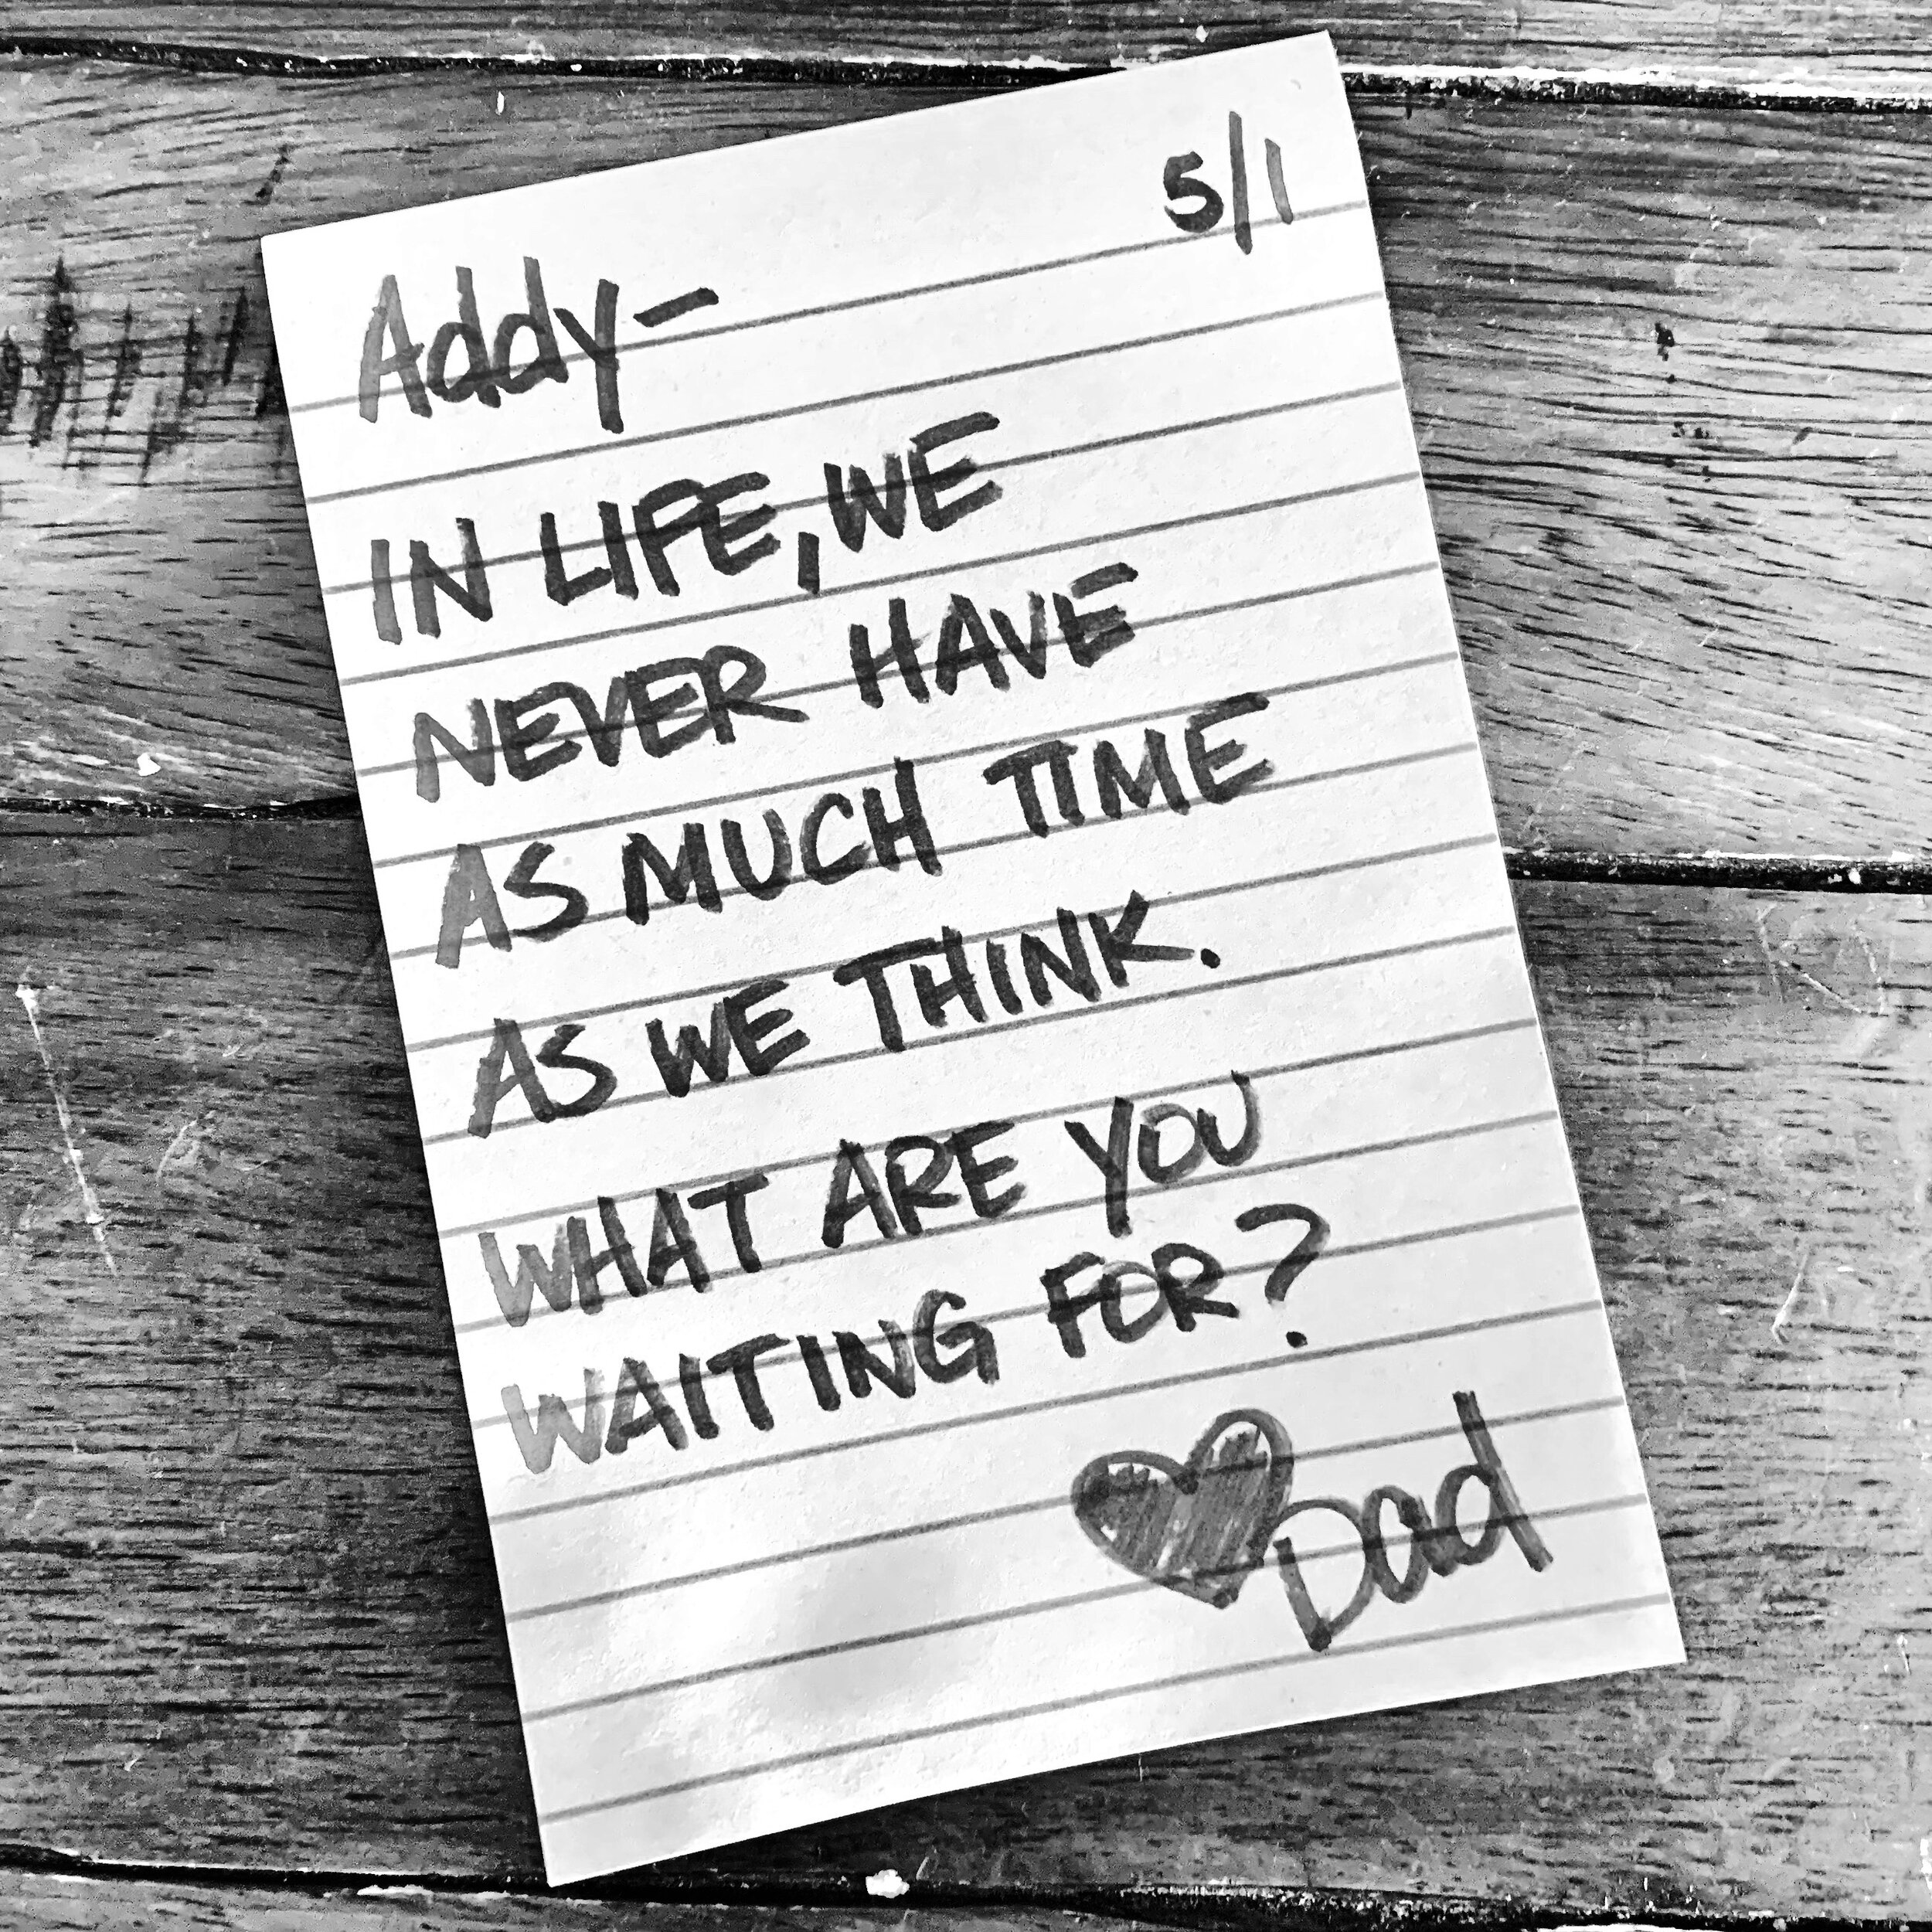 5/1
Addy-
IN LIFE, WE
NEVER HAVE
AS MUCH TIME
AS WE THINK.
WHAT ARE YOU
WAITING FOR?
Dad